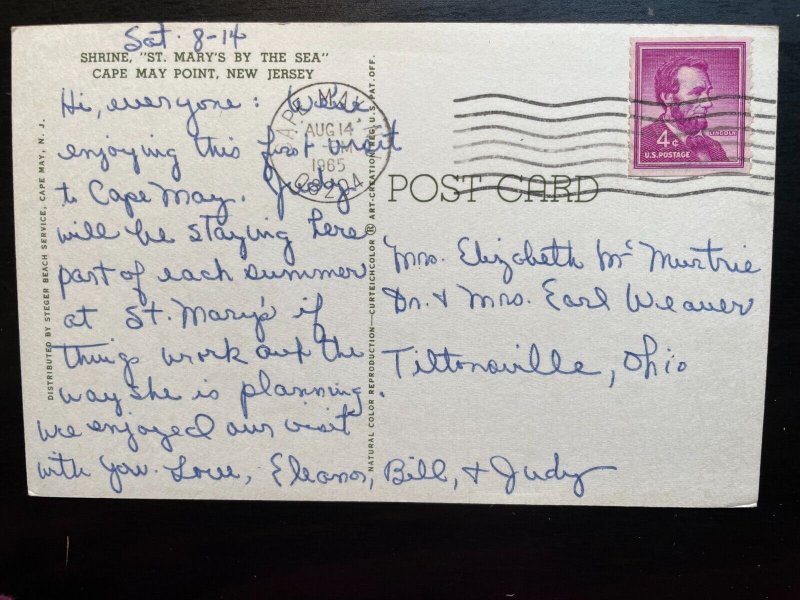 Sat. 8-14
SHRINE, "ST. MARY'S BY THE SEA"
CAPE MAY POINT, NEW JERSEY
Hi, everyone: We're
enjoying this first visit
to Cape May. Judy
will be staying here
part of each summer
at St. Mary's if
things work out the
way she is planning.
We enjoyed our visit
with you. Love, Eleanor, Bill, & Judy
DISTRIBUTED BY STEGER BEACH SERVICE, CAPE MAY, N. J.
NATURAL COLOR REPRODUCTION—CURTEICHCOLOR ® ART-CREATION REG. U.S. PAT. OFF.
CAPE MAY
AUG 14
PM
1965
08204
4¢
LINCOLN
U.S. POSTAGE
POST CARD
Mrs. Elizabeth McMurtrie
Dr. & Mrs. Earl Weaver
Tiltonsville, Ohio